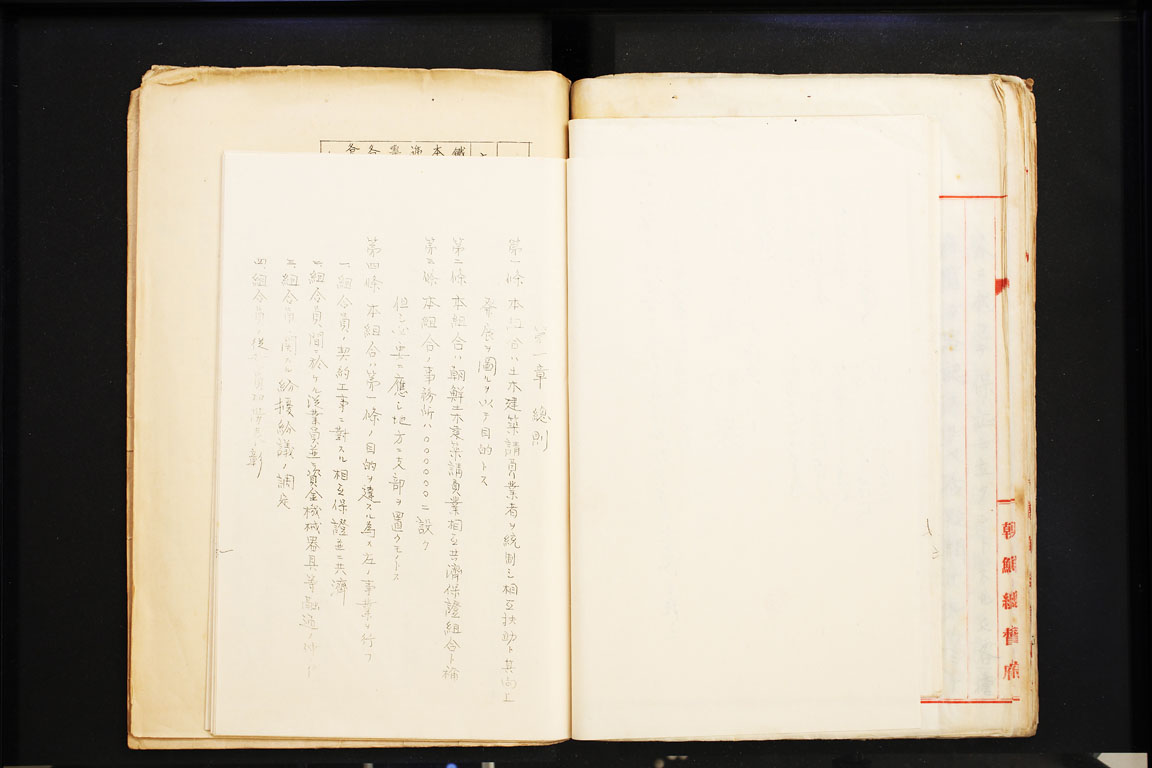 第一章 總則
第一條 本組合ハ土木建築請負業者ヲ統制シ相互扶助ト其向上
發展ヲ圖ルヲ以テ目的トス
第二條 本組合ハ朝鮮土木建築請負業相互共濟保證組合ト稱
第三條 本組合ノ事務所ハ〇〇〇〇〇〇ニ設ク
但シ必要ニ應シ地方ニ支部ヲ置クモノトス
第四條 本組合ハ第一條ノ目的ヲ達スル為メ左ノ事業ヲ行フ
一 組合員ノ契約工事ニ對スル相互保證並ニ共濟
二 組合員間ニ於ケル從業員並ニ資金機械器具等融通ノ
三 組合員ニ関スル紛擾紛議ノ調定
四 組合員ノ從業員
朝鮮總督府